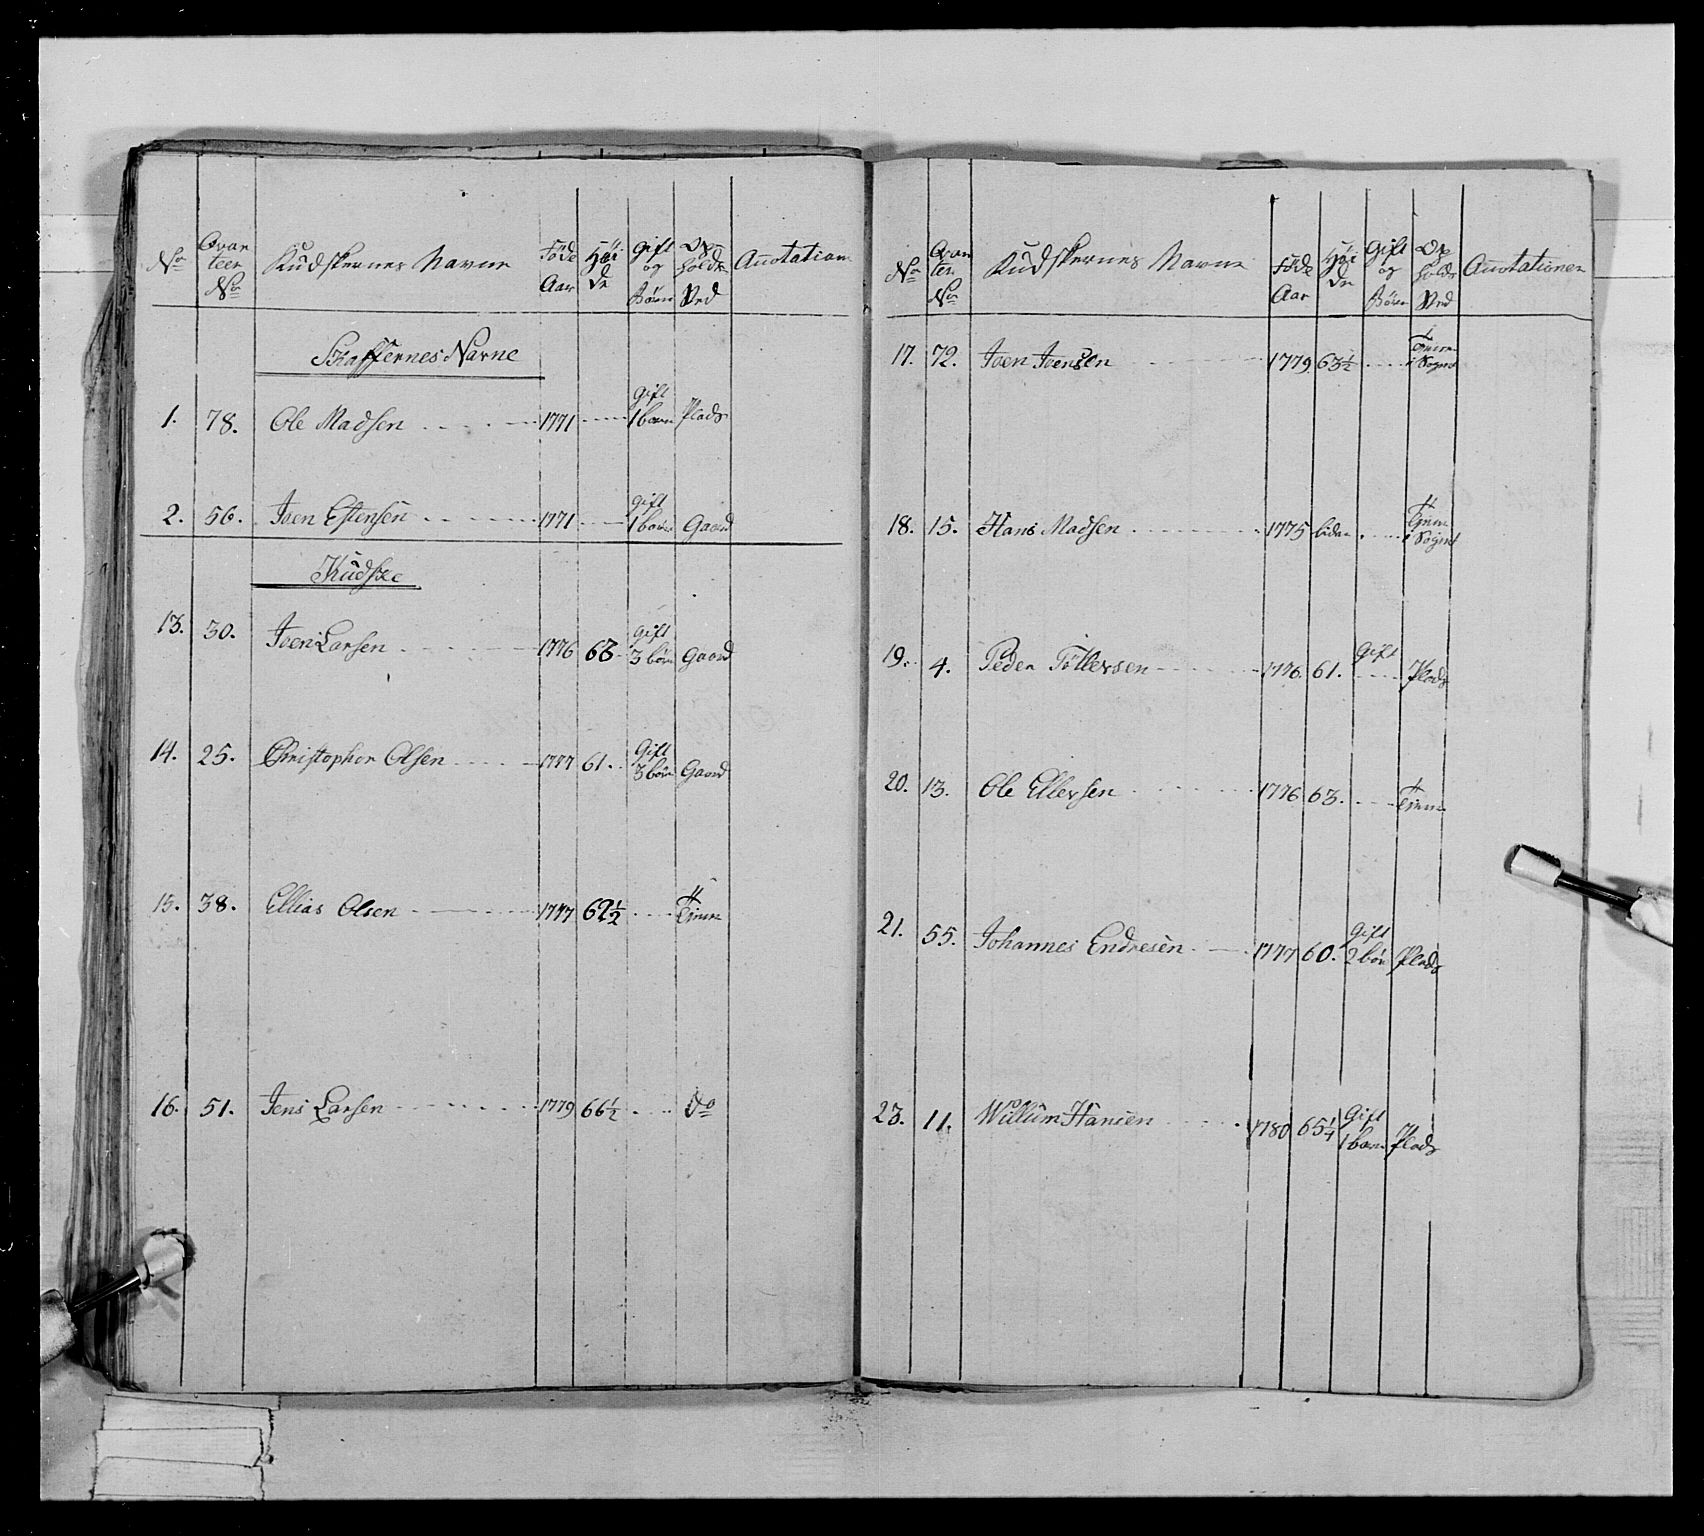 No Qvarteer No Kudskernes Navne Føde Aar Høide Gift og Børn Opholds Sted Annotation
Skaffernes Navne
1. 78. Ole Madsen 1771 Gift 1 barn Plads
2. 56. Joen Estensen 1771 Gift 1 barn Gaard
Kudske
13. 30. Joen Larsen 1776 63 Gift 3 børn Gaard
14. 25. Christopher Olsen 1777 61. Gift 3 børn Gaard
15. 38. Ellias Olsen 1777 62½ Tienn
16. 51. Jens Larsen 1779 66½ do
No Qvarteer No Kudskernes Navne Føde Aar Høide Gift og Børn Opholds Sted Annotationer
17. 72. Joen Joensen 1779 63½ i Sognet
18. 15. Hans Madsen 1775 i Sognet
19. 4. Peder Tøllefsen 1776. 61. Gift Plads
20. 13. Ole Ellefsen 1776 63. Tienn
21. 55. Johannes Endresen 1777 60. Gift 2 børn Plads
23. 11. Willum Hansen 1780 65¼ Gift 1 barn Plads